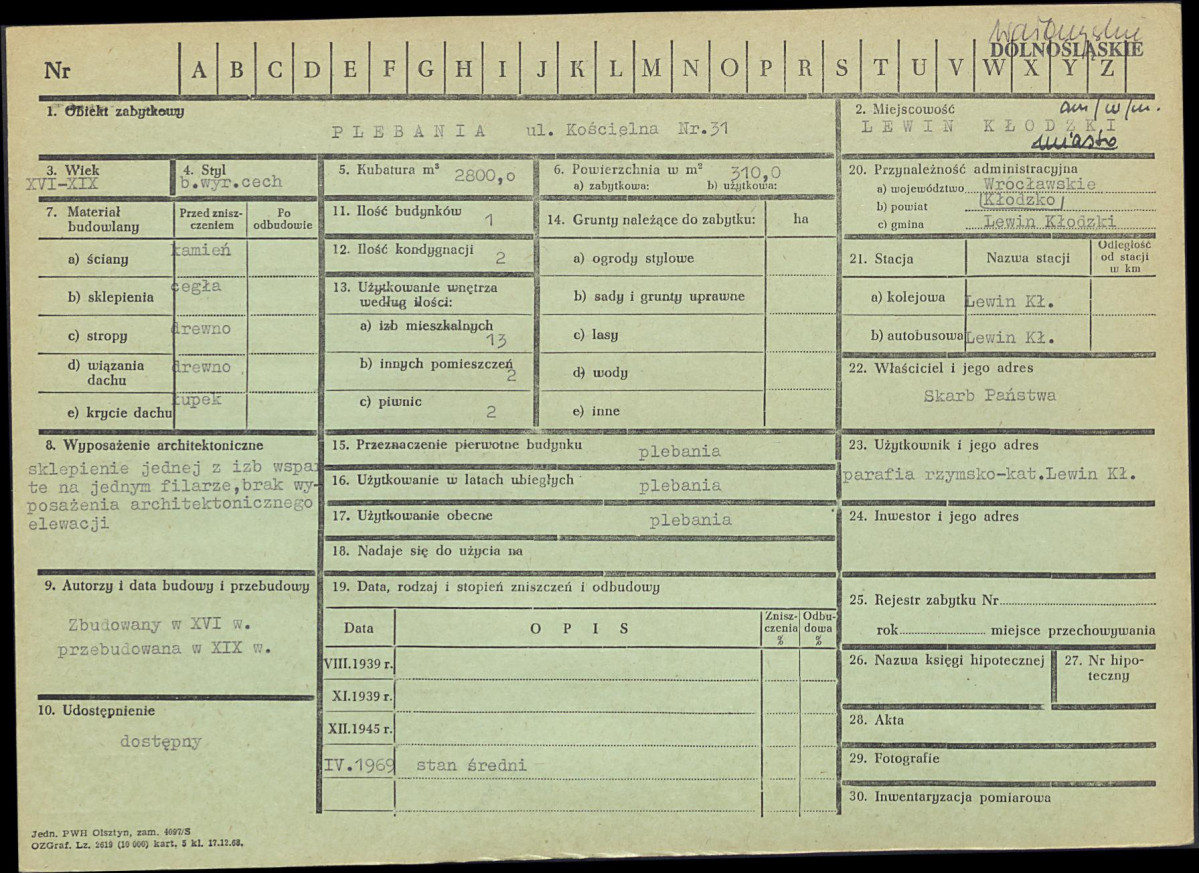 wałbrzyskie
DOLNOŚLĄSKIE
Nr A B C D E F G H I J K L M N O P R S T U V W X Y Z
1. Obiekt zabytkowy
PLEBANIA ul. Kościelna Nr.31
2. Miejscowość
LEWIN KŁODZKI
miasto
3. Wiek
XVI-XIX
4. Styl
b.wyr.cech
5. Kubatura m³ 2800,0
6. Powierzchnia w m² 310,0
a) zabytkowa: b) użytkowa:
20. Przynależność administracyjna
a) województwo Wrocławskie
b) powiat Kłodzko
c) gmina Lewin Kłodzki
7. Materiał budowlany
Przed znisz-
czeniem
Po
odbudowie
a) ściany kamień
b) sklepienia cegła
c) stropy drewno
d) wiązania
dachu drewno
e) krycie dachu łupek
11. Ilość budynków 1
12. Ilość kondygnacji 2
13. Użytkowanie wnętrza
według ilości:
a) izb mieszkalnych
13
b) innych pomieszczeń
2
c) piwnic 2
14. Grunty należące do zabytku: ha
a) ogrody stylowe
b) sady i grunty uprawne
c) lasy
d) wody
e) inne
21. Stacja Nazwa stacji
Odległość
od stacji
w km
a) kolejowa Lewin Kł.
b) autobusowa Lewin Kł.
22. Właściciel i jego adres
Skarb Państwa
8. Wyposażenie architektoniczne
sklepienie jednej z izb wspar
te na jednym filarze,brak wy-
posażenia architektonicznego
elewacji
15. Przeznaczenie pierwotne budynku plebania
16. Użytkowanie w latach ubiegłych plebania
17. Użytkowanie obecne plebania
18. Nadaje się do użycia na
23. Użytkownik i jego adres
parafia rzymsko-kat.Lewin Kł.
24. Inwestor i jego adres
9. Autorzy i data budowy i przebudowy
Zbudowany w XVI w.
przebudowana w XIX w.
19. Data, rodzaj i stopień zniszczeń i odbudowy
Data O P I S
Znisz-
czenia
%
Odbu-
dowa
%
VIII.1939 r.
XI.1939 r.
XII.1945 r.
IV.1969 stan średni
25. Rejestr zabytku Nr
rok miejsce przechowywania
26. Nazwa księgi hipotecznej
27. Nr hipo-
teczny
10. Udostępnienie
dostępny
28. Akta
29. Fotografie
30. Inwentaryzacja pomiarowa
Jedn. PWH Olsztyn, zam. 4697/S
OZGraf. Lz. 2619 (10 000) kart. 5 kl. 17.12.68.